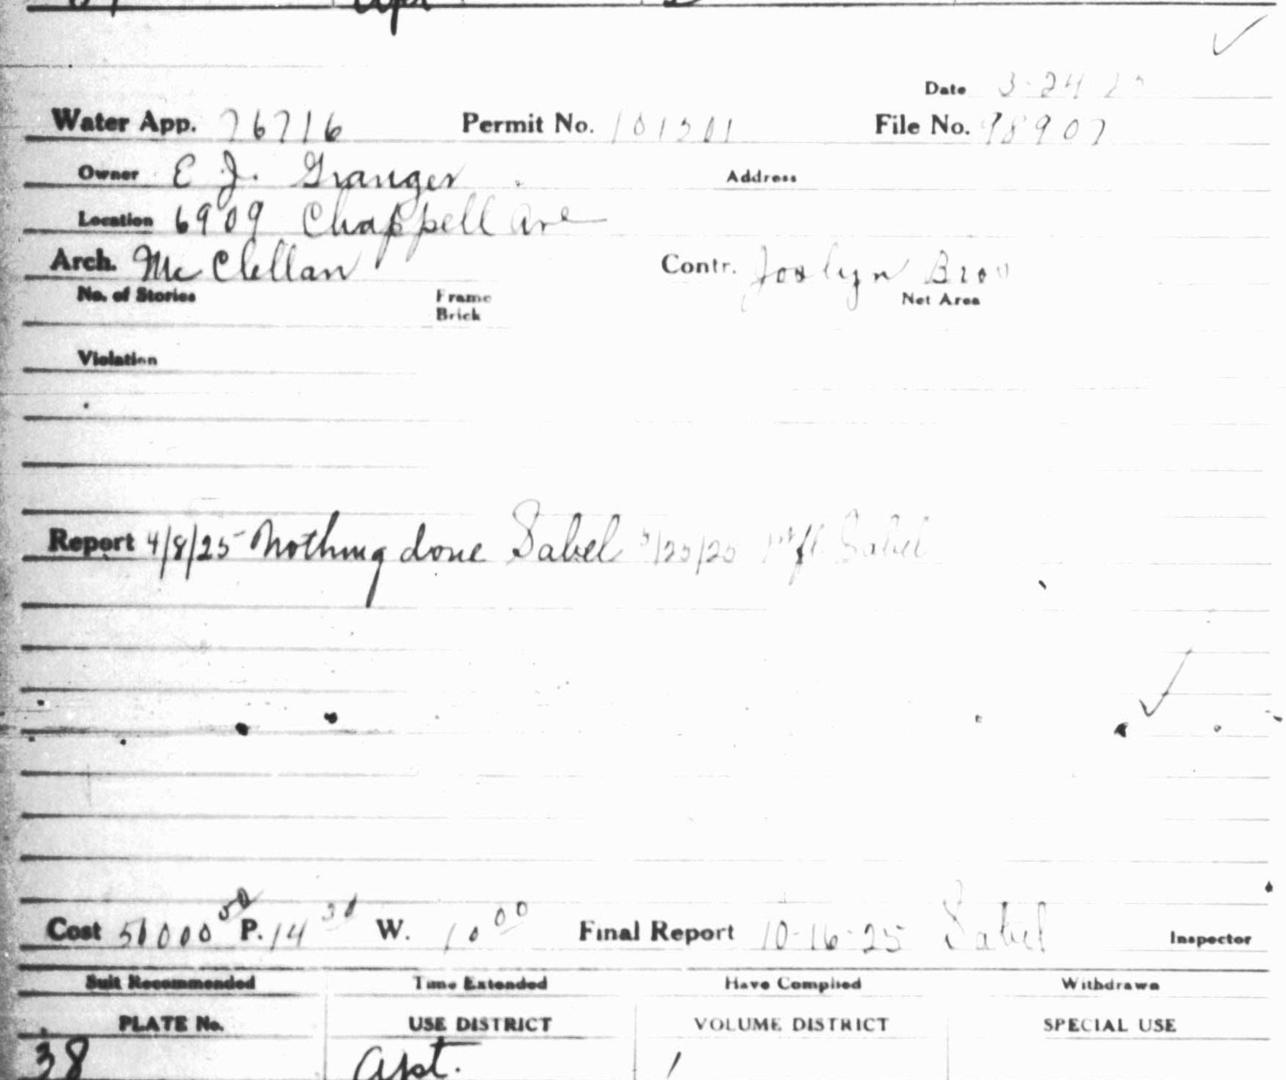 Date 3-24 25
Water App. 76716 Permit No. 101501 File No. 98907
Owner E J. Granger Address
Location 6909 Chappell Ave
Arch. McClellan Contr. Joslyn Bros
No. of Stories Frame Net Area
Brick
Violation
Report 4/8/25 Nothing done Sabel 1st fl. Sabel
Cost 50000 P. 14 W. 10 00 Final Report 10-16-25 Sabel Inspector
Suit Recommended Time Extended Have Complied Withdrawn
PLATE No. USE DISTRICT VOLUME DISTRICT SPECIAL USE
38 Apt. 1